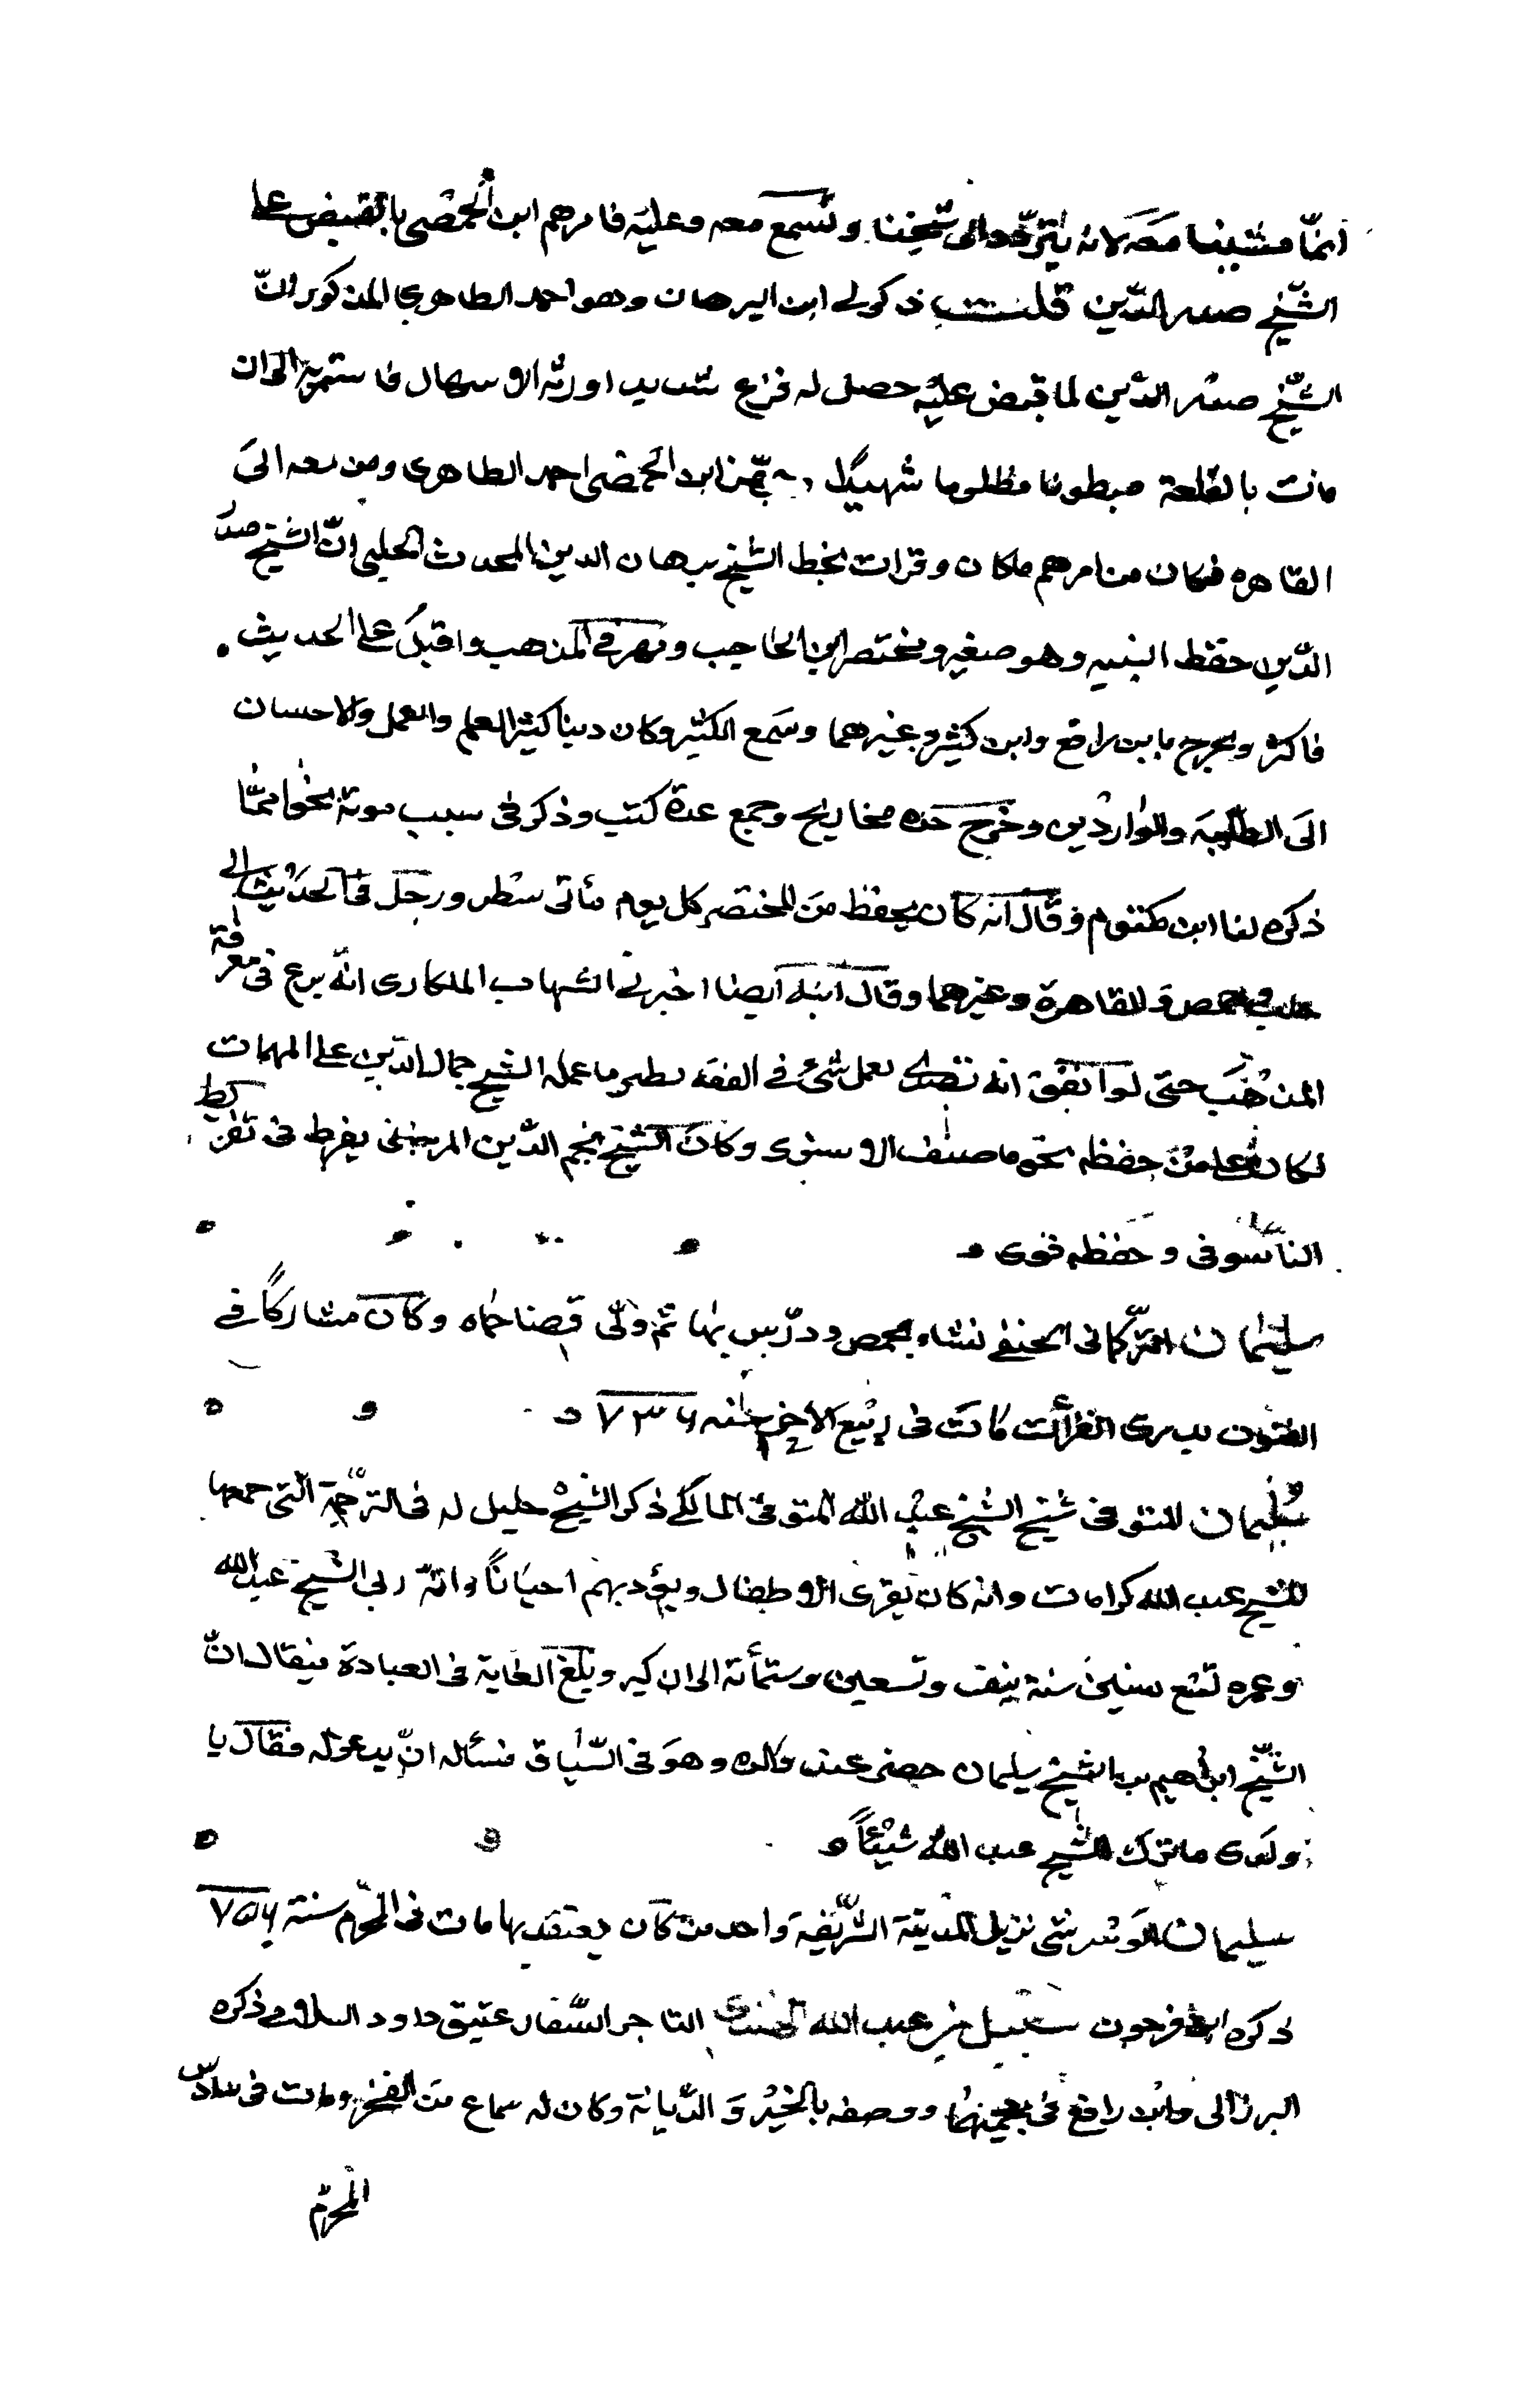 انمّا مشينا معه لانه يتردّد الى شيخنا ونسمع معه وعليه فامرهم ابن الحمصى بالقبض على
الشّيخ صدر الدّين قلت ذكر لى ابن البرهان وهو احمد الظاهرى المذكور انّ
الشّيخ صدر الدّين لما قبض عليه حصل له فزع شديد اورثه الاسهال فاستمر به الى ان
مات بالقلعة مبطونا مظلوما شهيدًا جهّز ابن الحمصى احمد الظاهرى ومن معه الى
القاهره فكان من امرهم ما كان وقرات بخط الشّيخ برهان الدين المحدث الحلبى انّ الشيخ صدر
الدّين حفظ التنبيه وهو صغير ومختصر ابن الحاجب ومهر فى المذهب واقبل على الحديث
فاكثر وتخرج بابن رافع وابن كثير وغيرهما وسمع الكثير وكان دينا كثير العلم والعمل والاحسان
الى الطلبه والواردين وخرج عده تخاريج وجمع عدة كتب وذكر فى سبب موته نحوا ممّا
ذكره لنا ابن مكتوم وقال انه كان يحفظ من المختصر كل يوم مأتى سطر ورحل فى الحديث الى
حلب وحمص والقاهرة وغيرهما وقال ايضا اخبرنى الشهاب الملكاوى انّه برع فى معرفة
المذهب حتى لو اتفق انه تصدى لعمل شئ فى الفقه نظير ما عمله الشيخ جمال الدّين على المهمات
لكان على من حفظه نحو ما صنف الاسنوى وكان الشّيخ نجم الدّين المرجانى يفرط فى تقريظ
الناسوفى وحفظه قوى
سليمان التركمانى الحنفى نشاء بحمص ودرّس بها ثم ولّى قضا حماه وكان مشاركًا فى
الفنون يدرى القرأت مات فى ربيع الآخر سنه ٧٣٦
سليمان المنوفى شيخ الشيخ عبد الله المنوفى المالكى ذكر الشيخ خليل له فى الترجمة التى جمعها
للشيخ عبد الله كرامات وانه كان يقرى الاطفال ويؤدبهم احيانًا وانّه ربى الشيخ عبد الله
وعمره تسع سنين سنة نيف وتسعين وستمأئة الى ان كبر وبلغ الغاية فى العبادة فيقال انّ
الشّيخ ابراهيم بن الشيخ سليمان حضر عند والده وهو فى السّياق فسأله انّ يدعو له فقال يا
ولدى ما ترك الشيخ عبد الله شيئًا
سليمان الونشريشى نزيل المدينة الشّريفة واحد من كان يعتقد بها مات فى المحرّم سنة ٧٥٦
ذكره ابن فرحون سنبل بن عبد الله الهندى التاجر السّفار عتيق داود السلامى ذكره
البرزالى وابن رافع فى معجميهما ووصفه بالخير والدّيانة وكان له سماع من الفخر ومات فى سادس
المحرّم